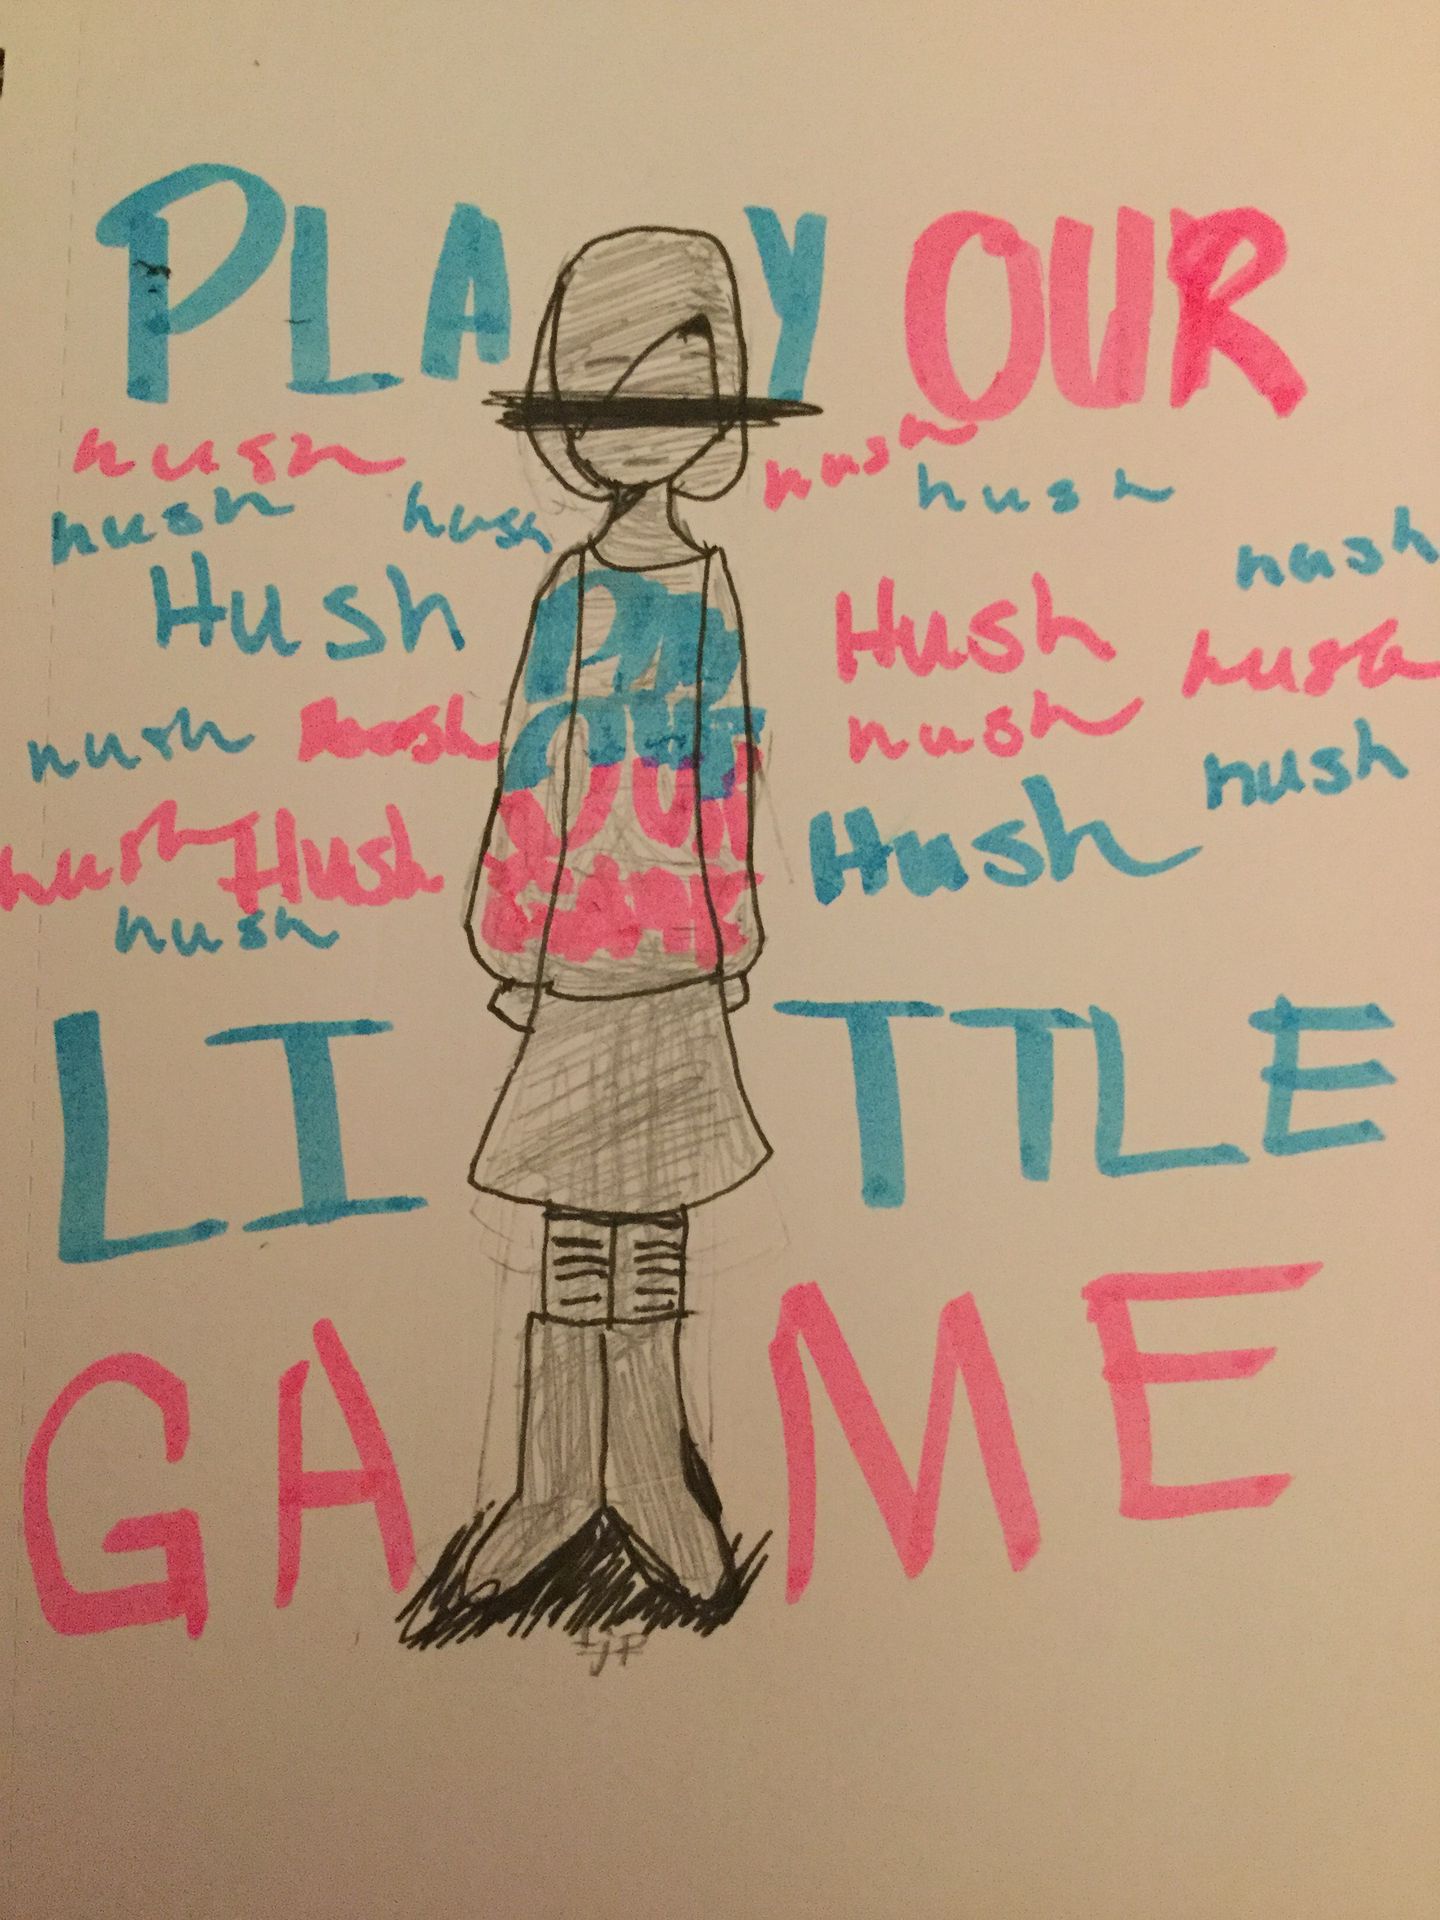 PLAY OUR
hush hush
hush hush hush
Hush hush
Hush
hush hush
hush hush
hush Hush Hush hush
hush
OUR
LITTLE
GAME